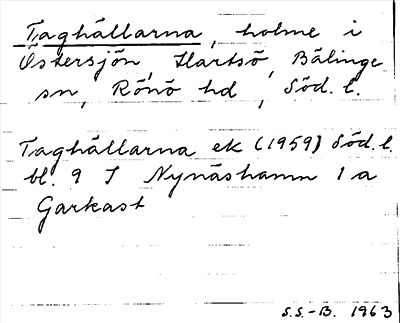 Taghällarna, holme i
Östersjön, Hartsö, Bälinge
sn, Rönö hd, Söd. l.
Taghällarna ek (1959) Söd. l.
bl. 9 I Nynäshamn 1 a
Garkast
S.S.-B. 1963